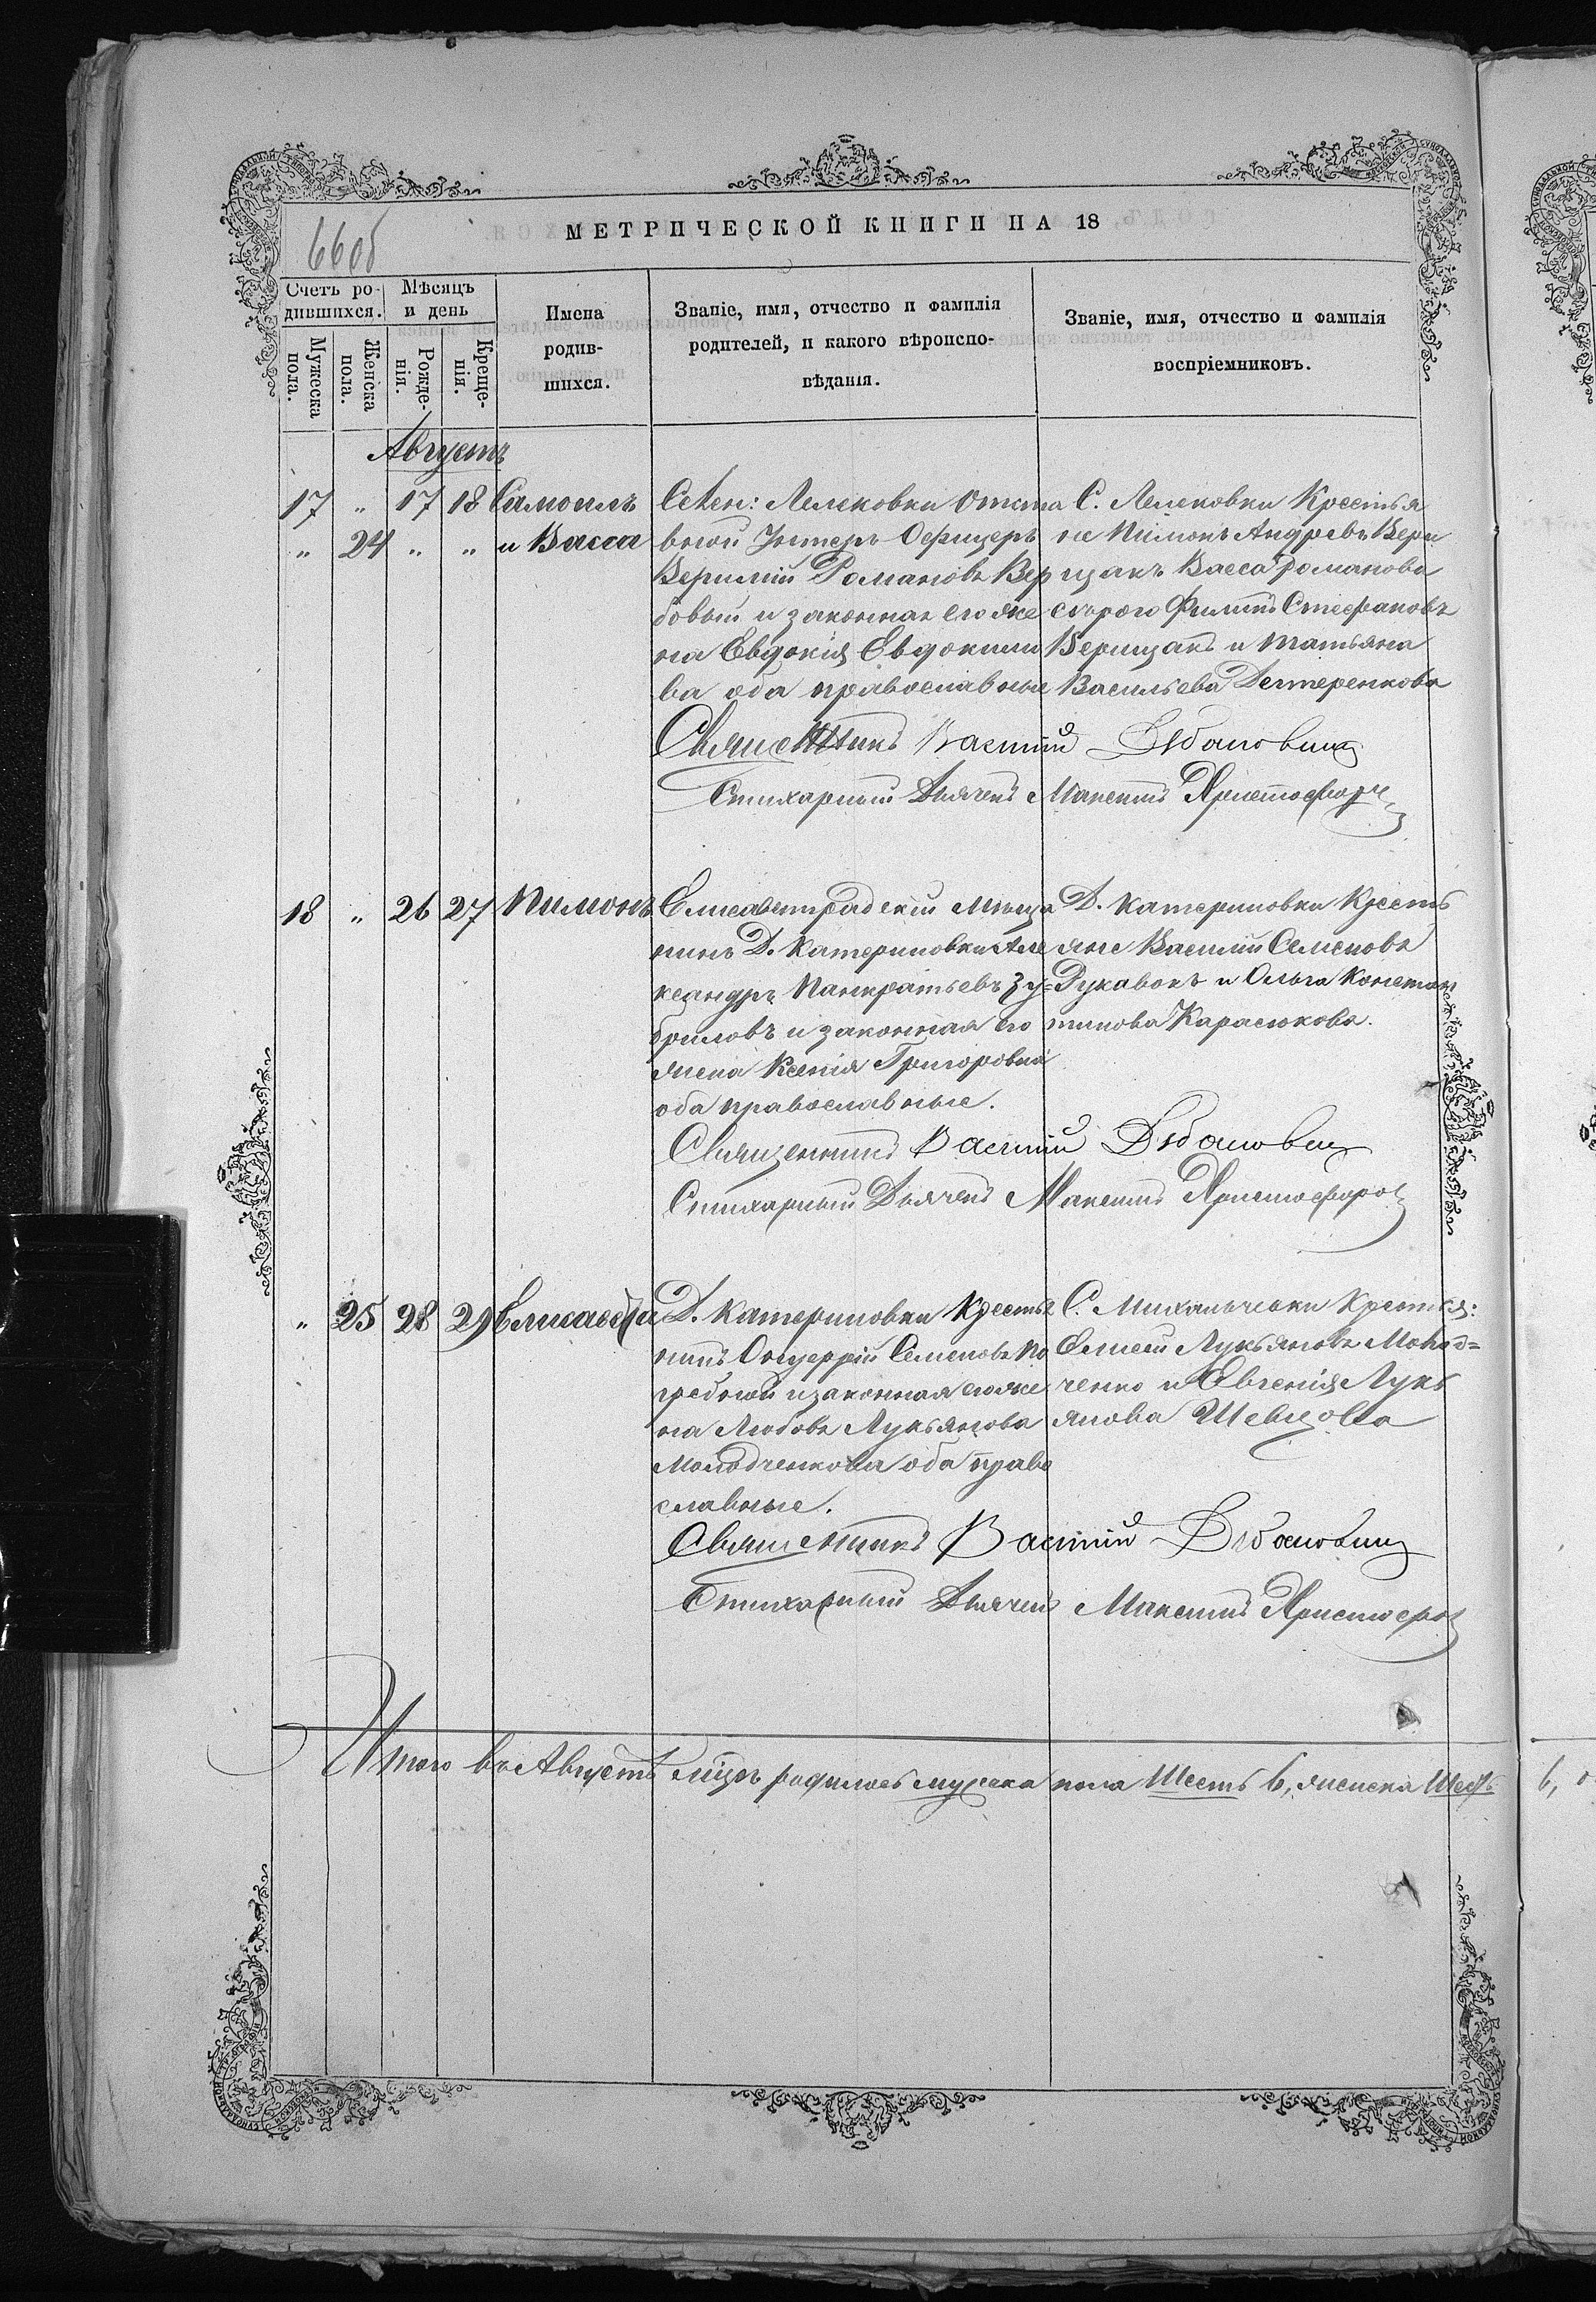 660б
МЕТРИЧЕСКОЙ КНИГИ НА 18
Счетъ ро-
дившихся.
Мужеска пола.
Женска пола.
Мѣсяцъ
и день
Рожде-
нія.
Креще-
нія.
Имена
родив-
шихся.
Званіе, имя, отчество и фамилія
родителей, и какого вѣроиспо-
вѣданія.
Званіе, имя, отчество и фамилія
воспріемниковъ.
Августъ
17 " 17 18 Самоилъ
" 24 " " и Васса
Лелековки Отста
вной Унтеръ-Офицеръ
Романовъ Вер
бовый и законная его же
на Евдокія Евдокимо
ва оба православные
С. Лелековки Крестья
не Пимонъ Андреевъ Вери
щакъ Васса Романова
Филипъ Стефановъ
Верищакъ и Татьяна
Васильева Дегтеренкова
Священникъ Василій
Стихарный Дьячекъ Максимъ Христофоров
18 " 26 27 Пимонъ
Елисаветградскій Мѣща
нинъ Д. Катериновки Але
ксандръ Панкратьевъ Зу=
бриловъ и законная его
жена Ксенія Григоровна
оба православные.
Д. Катериновки Кресть
яне Василій Семеновъ
Рукавокъ и Ольга Констан
тинова Карасюкова.
Священникъ Василій
Стихарный Дьячекъ Максимъ Христофоров
" 25 28 29 Елисавета
Д. Катериновки Крестья
нинъ Онуфрій Семеновъ По
гребной и законная его же
на Любовь Лукьянова
Молодченкова оба право
славные.
С. Михальчевки Крестья:
Елисей Лукьяновъ Молод=
ченко и Евгенія Лукь
янова Шевцова
Священникъ Василій
Стихарный Дьячекъ Максимъ Христофоров
Итого въ Августѣ мѣсяцѣ родилось мужска пола Шесть 6, женска Шесть
6, о